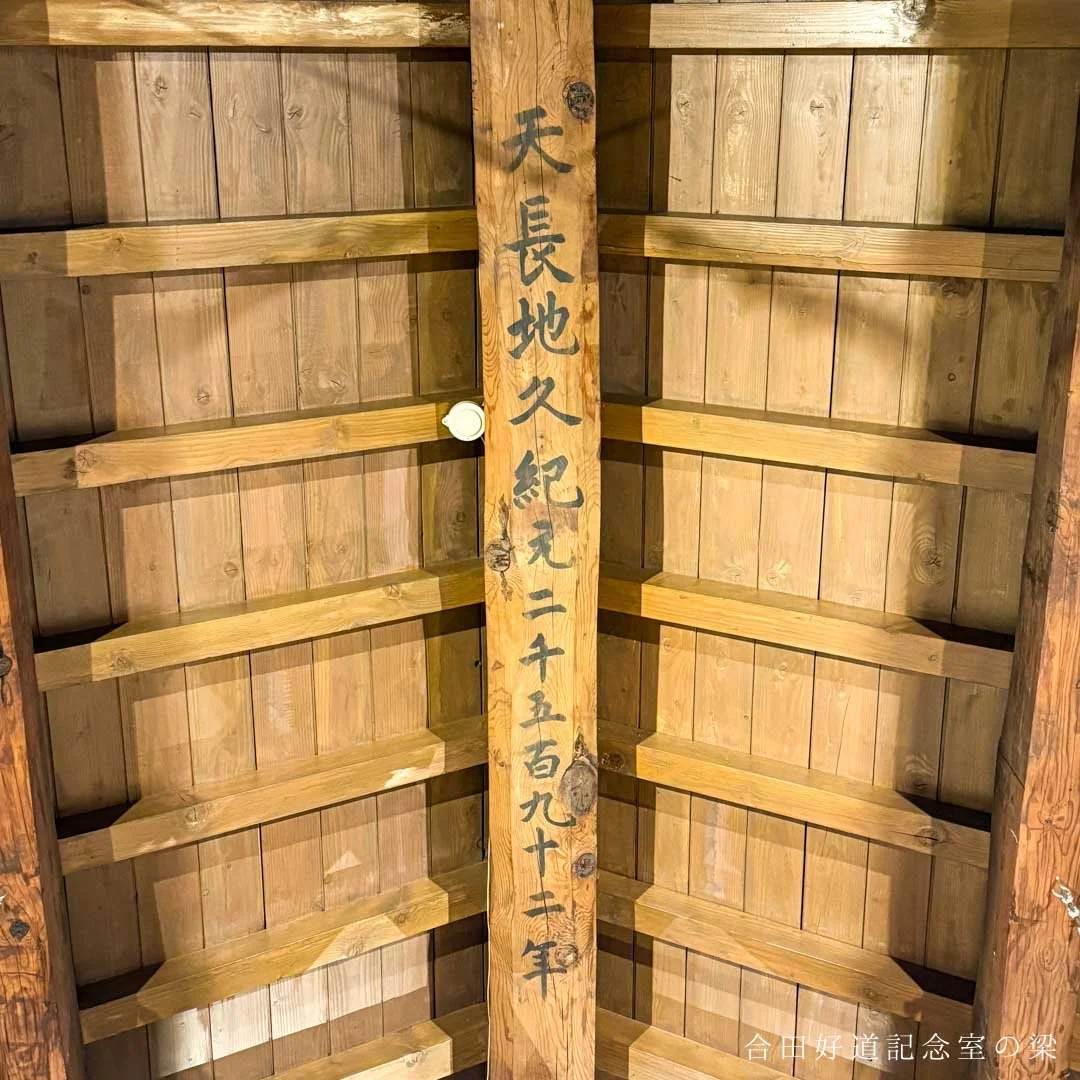 天長地久紀元二千五百九十二年
合田好道記念室の梁